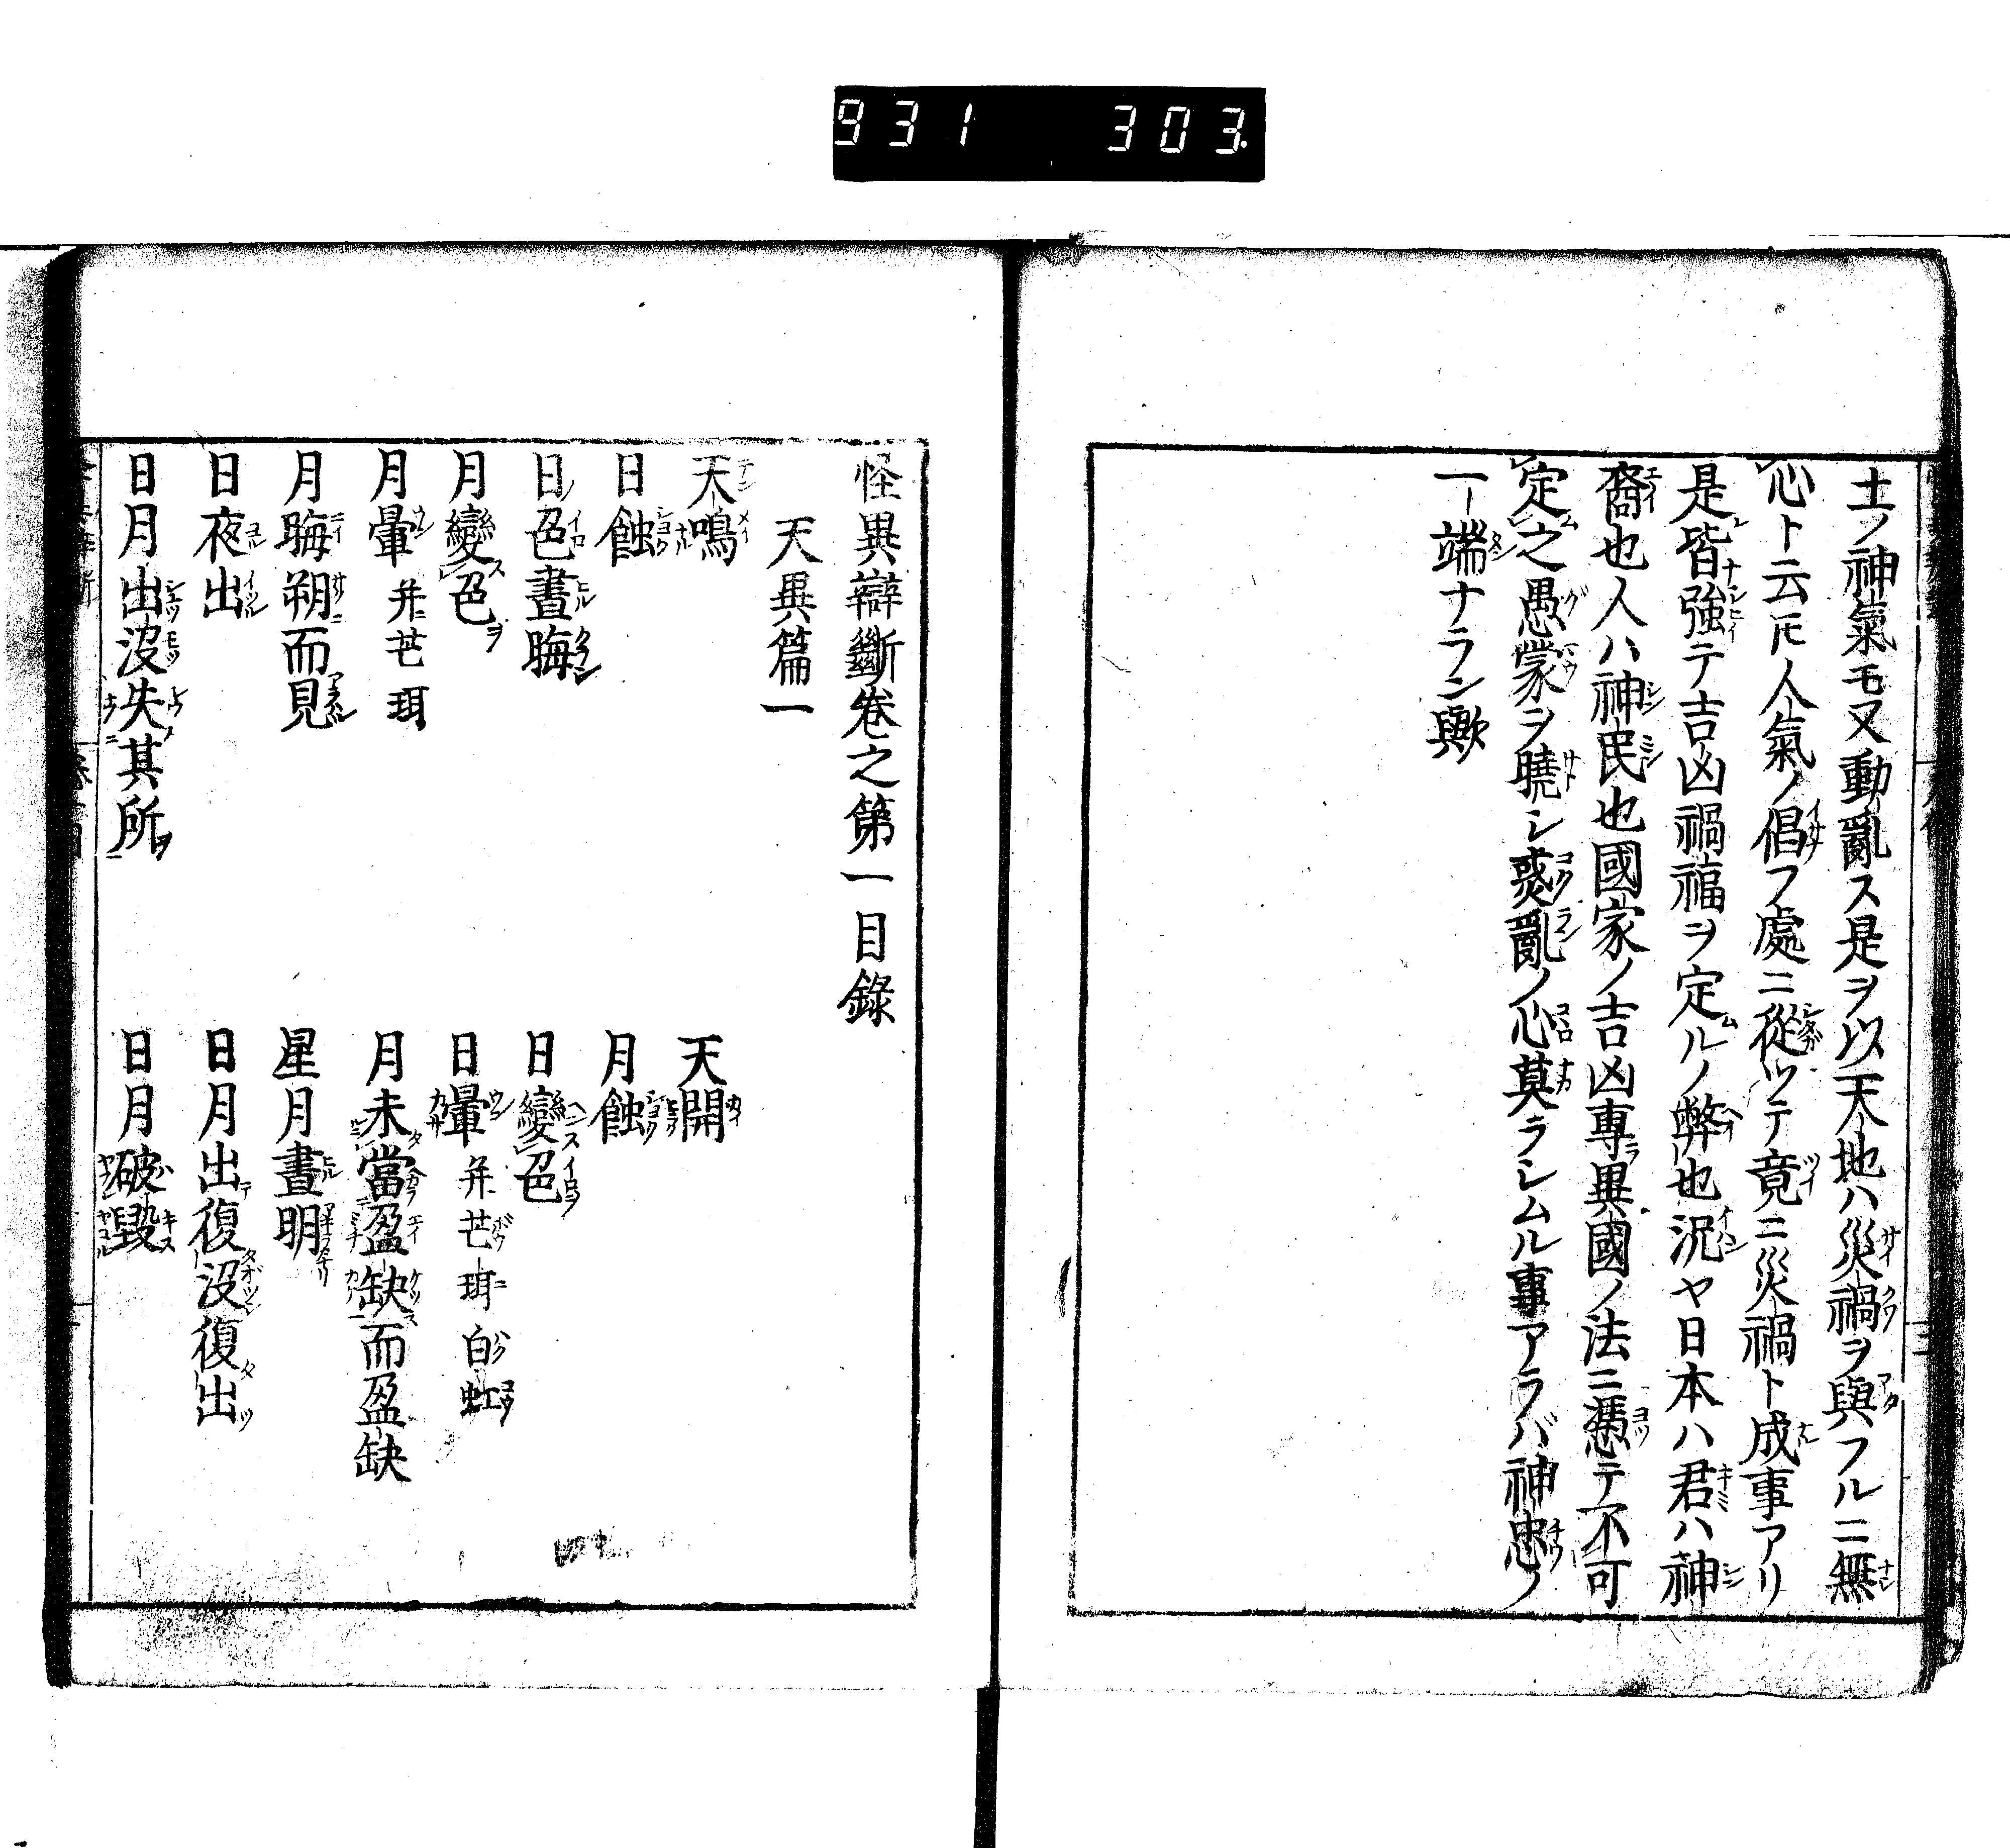 931 303
土ノ神氣モ又動亂ス是ヲ以天地ハ災禍ヲ與フルニ無
心ト云𪜈人氣ノ倡フ處ニ從ツテ竟ニ災禍ト成事アリ
是皆強テ吉凶禍福ヲ定ルノ弊也況ヤ日本ハ君ハ神
裔也人ハ神民也國家ノ吉凶專異國ノ法ニ憑テ不可
定之愚蒙ヲ曉シ惑亂ノ心莫ラシムル事アラバ神忠ノ
一端ナラン歟
怪異辯斷卷之第一目錄
天異篇一
天鳴 天開
日蝕 月蝕
日色晝晦 日變色
月變色 日暈并芒珥白虹
月暈并芒珥 月未當盈缺而盈缺
月晦朔而見 星月晝明
日夜出 日月出復沒復出
日月出沒失其所 日月破毀